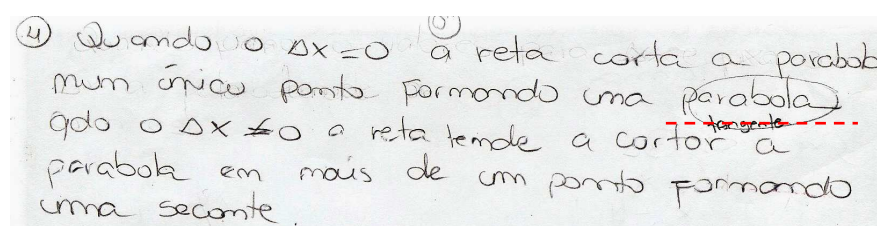 4 Quando o Δx=0 a reta corta a parabol
num único ponto formando uma parabola
tangente
qdo o Δx ≠0 a reta tende a cortar a
parabola em mais de um ponto formando
uma secante.